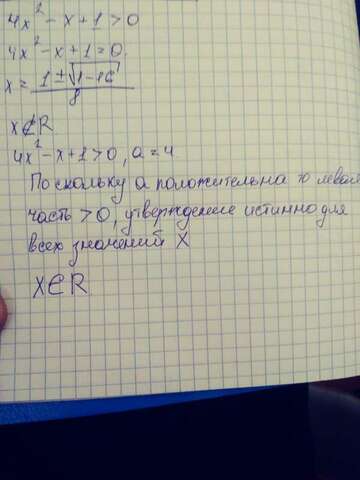 4x² - x + 1 > 0
4x² - x + 1 = 0.
x = (1 ± √(1 - 16)) / 8
x ∉ R
4x² - x + 1 > 0, a = 4
Поскольку а положительна то левая
часть > 0, утверждение истинно для
всех значений X
X ∈ R